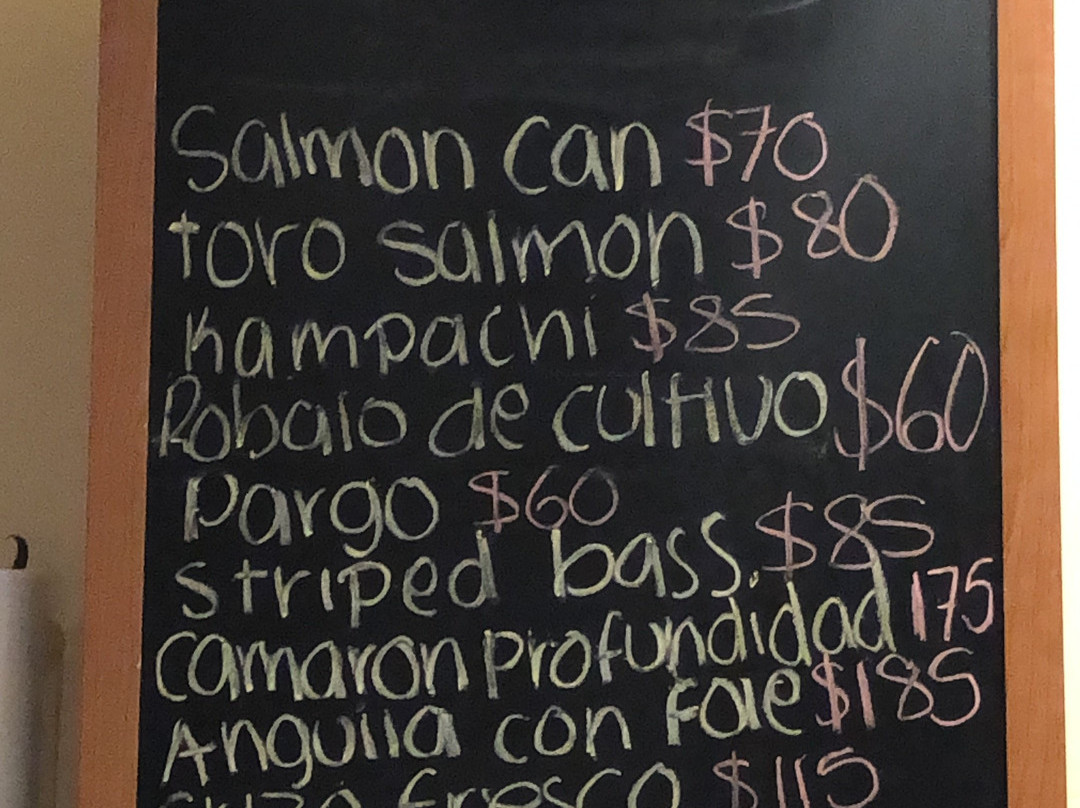 Salmon can $70
toro salmon $80
Kampachi $85
Robalo de cultivo $60
Pargo $60
striped bass. $85
camaron profundidad 175
Anguila con foie $185
fresco $115